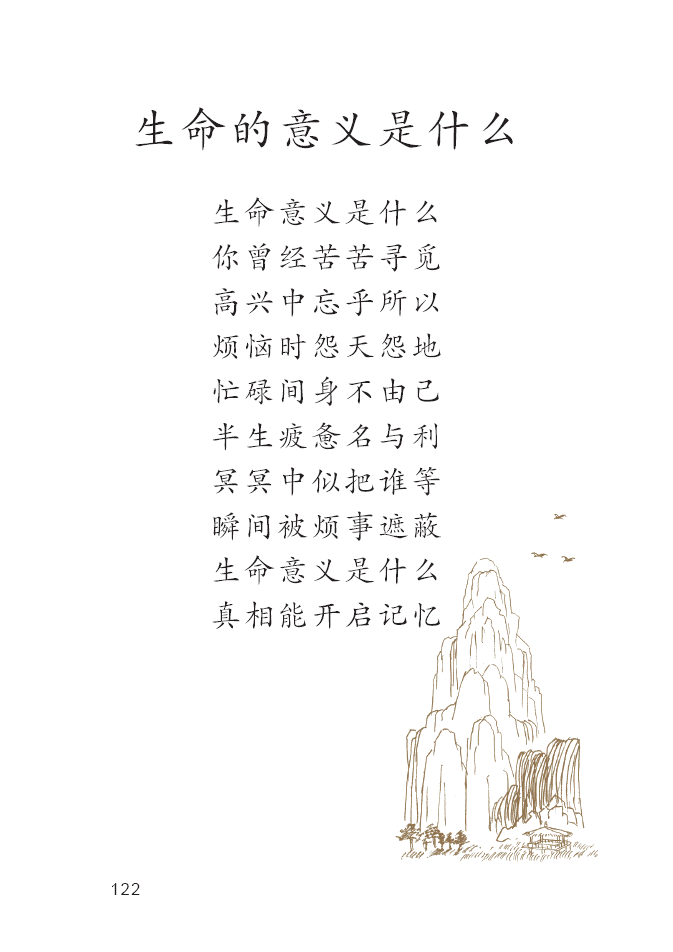 生命的意义是什么
生命意义是什么
你曾经苦苦寻觅
高兴中忘乎所以
烦恼时怨天怨地
忙碌间身不由己
半生疲惫名与利
冥冥中似把谁等
瞬间被烦事遮蔽
生命意义是什么
真相能开启记忆
122